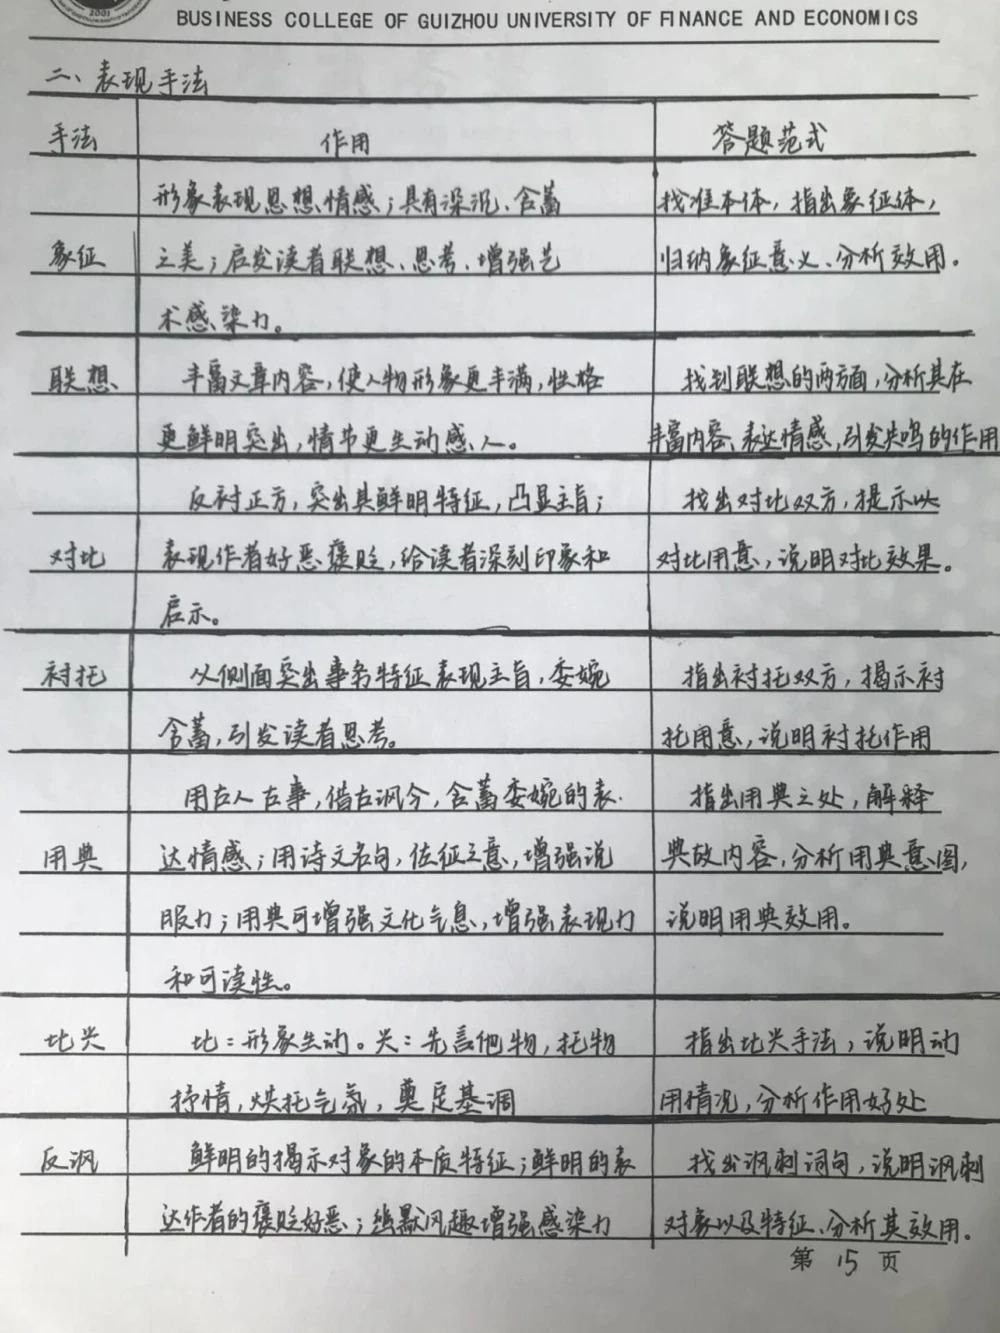 2001
BUSINESS COLLEGE OF GUIZHOU UNIVERSITY OF FINANCE AND ECONOMICS
二、表现手法
手法 作用 答题范式
形象表现思想情感；具有深沉、含蓄 找准本体，指出象征体，
象征 之美；启发读者联想、思考、增强艺 归纳象征意义、分析效用。
术感染力。
联想 丰富文章内容，使人物形象更丰满，性格 找到联想的两方面，分析其在
更鲜明突出，情节更生动感人。 丰富内容、表达情感，引发共鸣的作用
反衬正方，突出其鲜明特征，凸显主旨； 找出对比双方，提示以
对比 表现作者好恶褒贬，给读者深刻印象和 对比用意，说明对比效果。
启示。
衬托 从侧面突出事务特征表现主旨，委婉 指出衬托双方，揭示衬
含蓄，引发读者思考。 托用意，说明衬托作用
用古人古事，借古讽今，含蓄委婉的表 指出用典之处，解释
用典 达情感；用诗文名句，佐征立意，增强说 典故内容，分析用典意图，
服力；用典可增强文化气息，增强表现力 说明用典效用。
和可读性。
比兴 比：形象生动。兴：先言他物，托物 指出比兴手法，说明动
抒情，烘托气氛，奠定基调 用情况，分析作用好处
反讽 鲜明的揭示对象的本质特征；鲜明的表 找出讽刺词句，说明讽刺
达作者的褒贬好恶；幽默风趣增强感染力 对象以及特征、分析其效用。
第 15 页